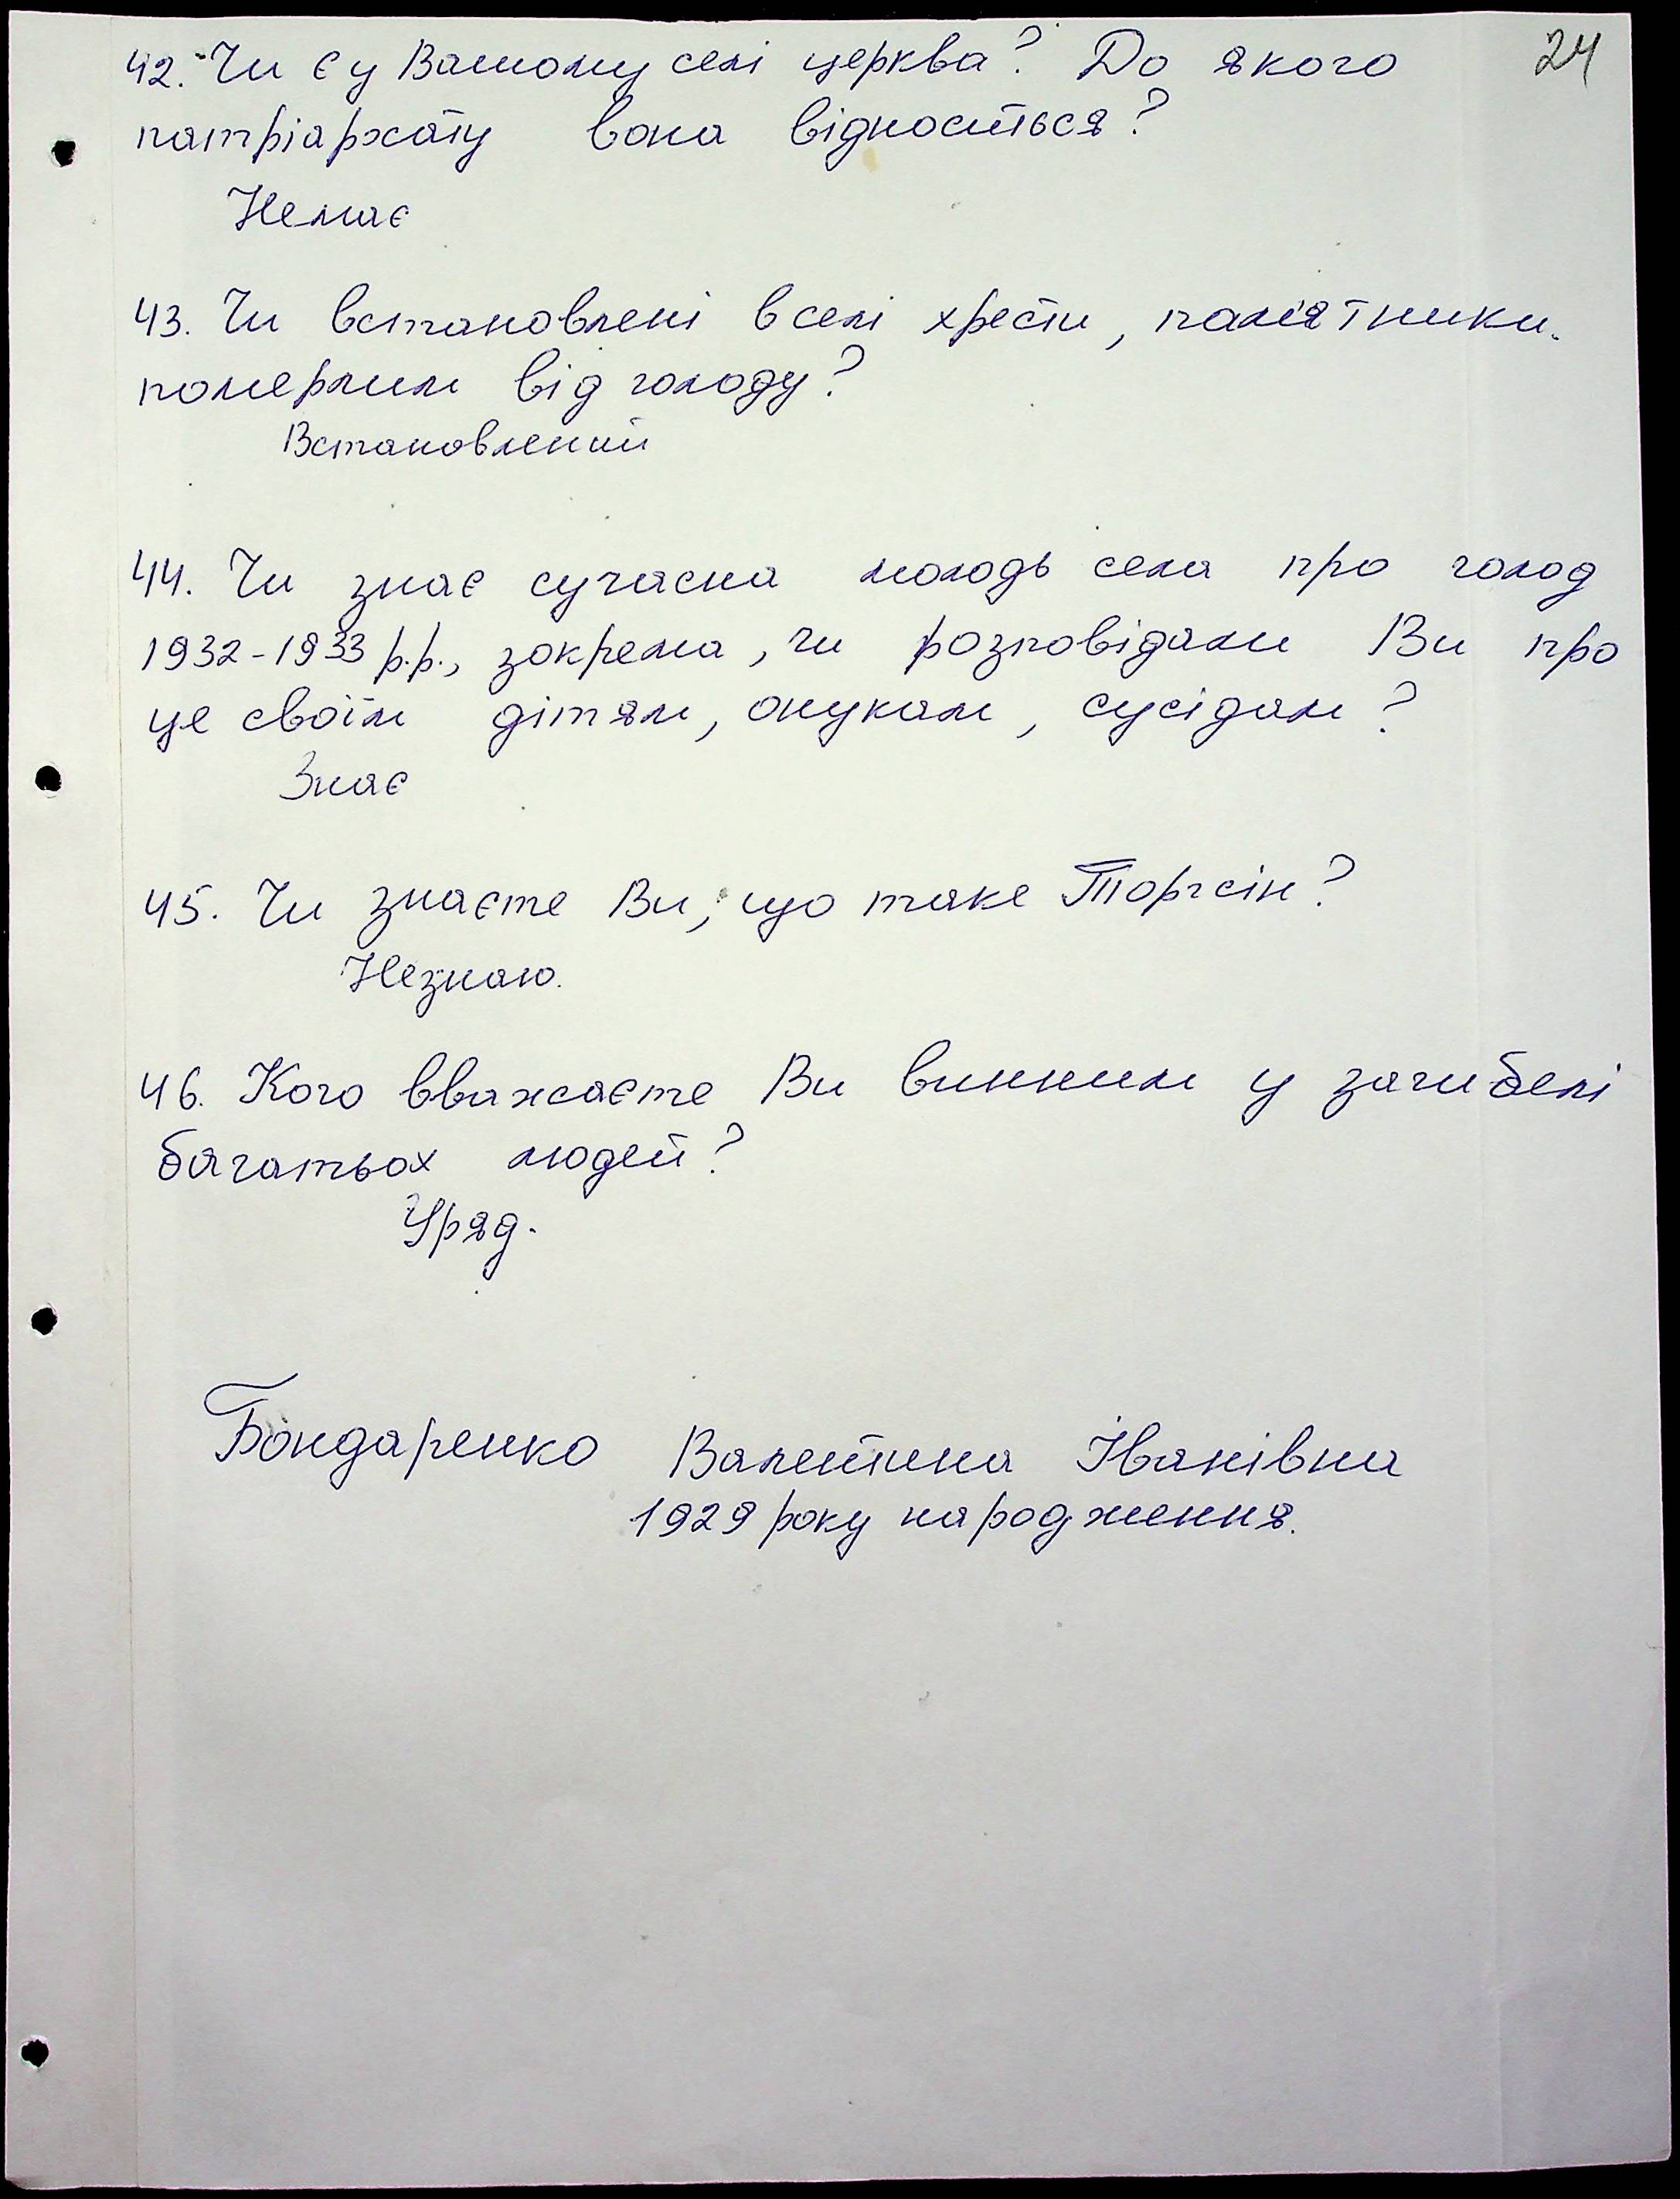 24
42. Чи є у Вашому селі церква? До якого
патріархату вона відноситься?
Немає
43. Чи встановлені в селі хрести, пам'ятники
померлим від голоду?
Встановлений
44. Чи знає сучасна молодь села про голод
1932-1933 р.р., зокрема, чи розповідали Ви про
це своїм дітям, онукам, сусідам?
Знає
45. Чи знаєте Ви, що таке Торгсін?
Незнаю.
46. Кого вважаєте Ви винним у загибелі
багатьох людей?
Уряд.
Бондаренко Валентина Іванівна
1929 року народження.